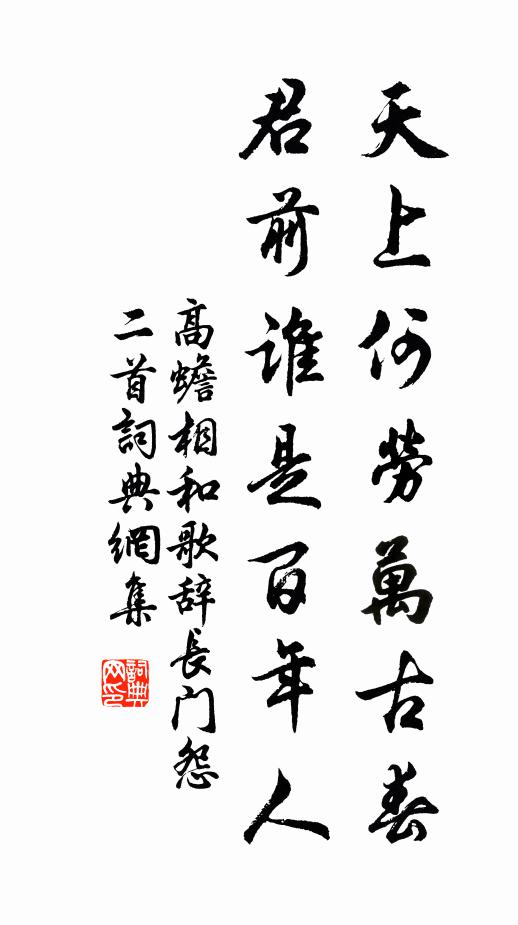 天上何勞萬古春
君前誰是百年人
高蟾相和歌辞長门怨
二首詞典網集
詞典网印